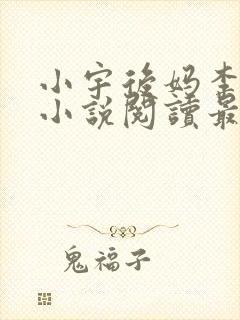 小宇後妈李
小說閱讀最
鬼福子